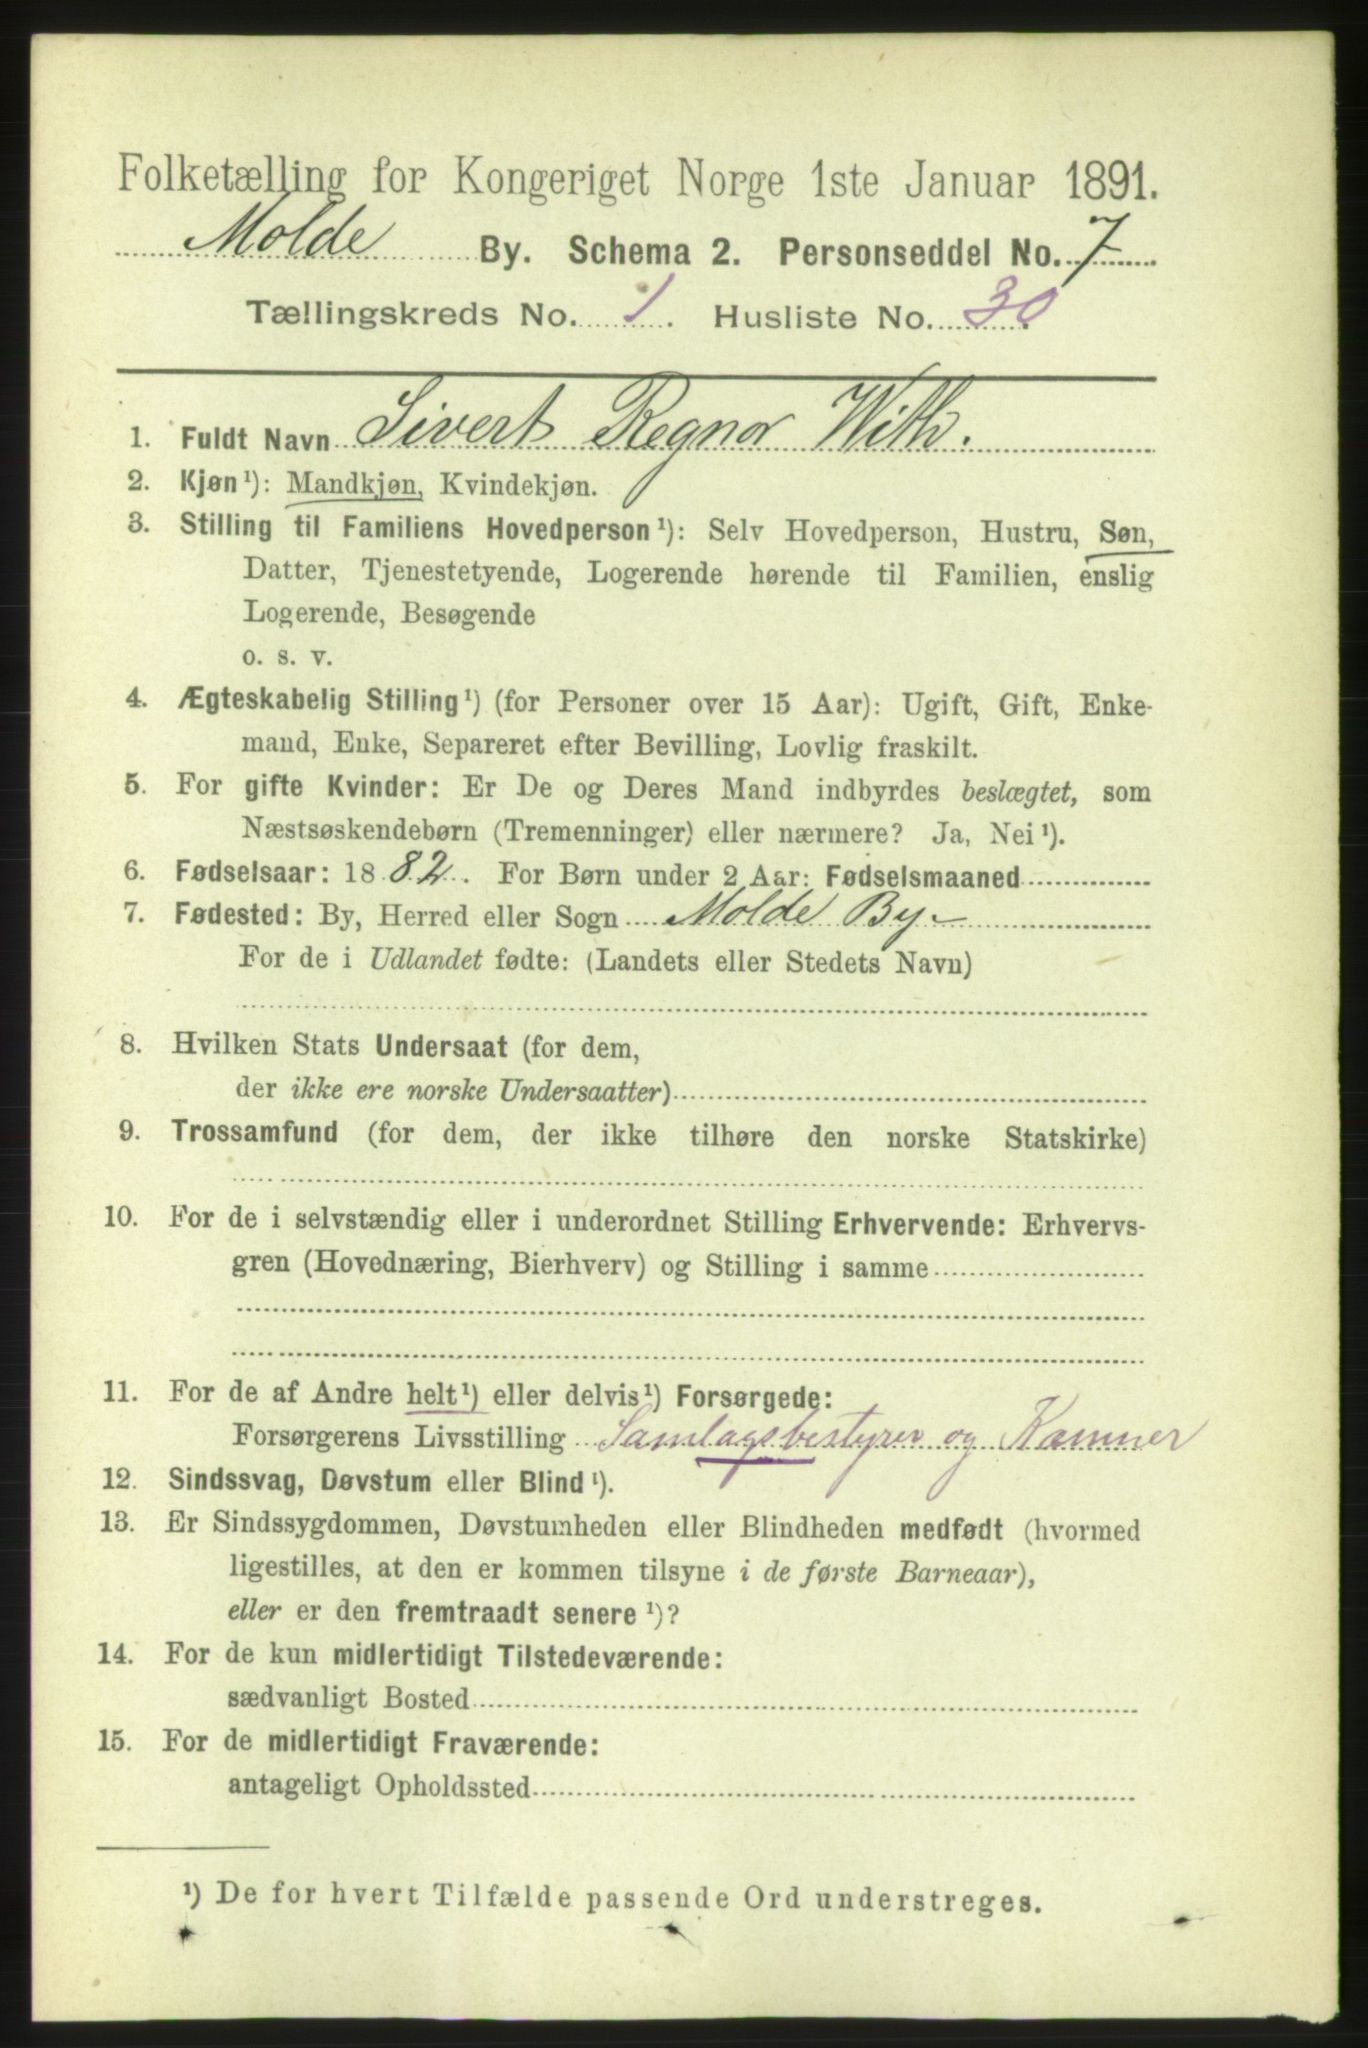 Folketælling for Kongeriget Norge 1ste Januar 1891.
Molde By. Schema 2. Personseddel No. 7
Tællingskreds No. 1. Husliste No. 30.
1. Fuldt Navn Sivert Regnor With.
2. Kjøn¹): Mandkjøn, Kvindekjøn.
3. Stilling til Familiens Hovedperson¹): Selv Hovedperson, Hustru, Søn,
Datter, Tjenestetyende, Logerende hørende til Familien, enslig
Logerende, Besøgende
o. s. v.
4. Ægteskabelig Stilling¹) (for Personer over 15 Aar): Ugift, Gift, Enke-
mand, Enke, Separeret efter Bevilling, Lovlig fraskilt.
5. For gifte Kvinder: Er De og Deres Mand indbyrdes beslægtet, som
Næstsøskendebørn (Tremenninger) eller nærmere? Ja, Nei¹).
6. Fødselsaar: 1882. For Børn under 2 Aar: Fødselsmaaned
7. Fødested: By, Herred eller Sogn Molde By
For de i Udlandet fødte: (Landets eller Stedets Navn)
8. Hvilken Stats Undersaat (for dem,
der ikke ere norske Undersaatter)
9. Trossamfund (for dem, der ikke tilhøre den norske Statskirke)
10. For de i selvstændig eller i underordnet Stilling Erhvervende: Erhvervs-
gren (Hovednæring, Bierhverv) og Stilling i samme
11. For de af Andre helt¹) eller delvis¹) Forsørgede:
Forsørgerens Livsstilling Samlagsbestyrer og Kæmner
12. Sindssvag, Døvstum eller Blind¹).
13. Er Sindssygdommen, Døvstumheden eller Blindheden medfødt (hvormed
ligestilles, at den er kommen tilsyne i de første Barneaar),
eller er den fremtraadt senere¹)?
14. For de kun midlertidigt Tilstedeværende:
sædvanligt Bosted
15. For de midlertidigt Fraværende:
antageligt Opholdssted
¹) De for hvert Tilfælde passende Ord understreges.